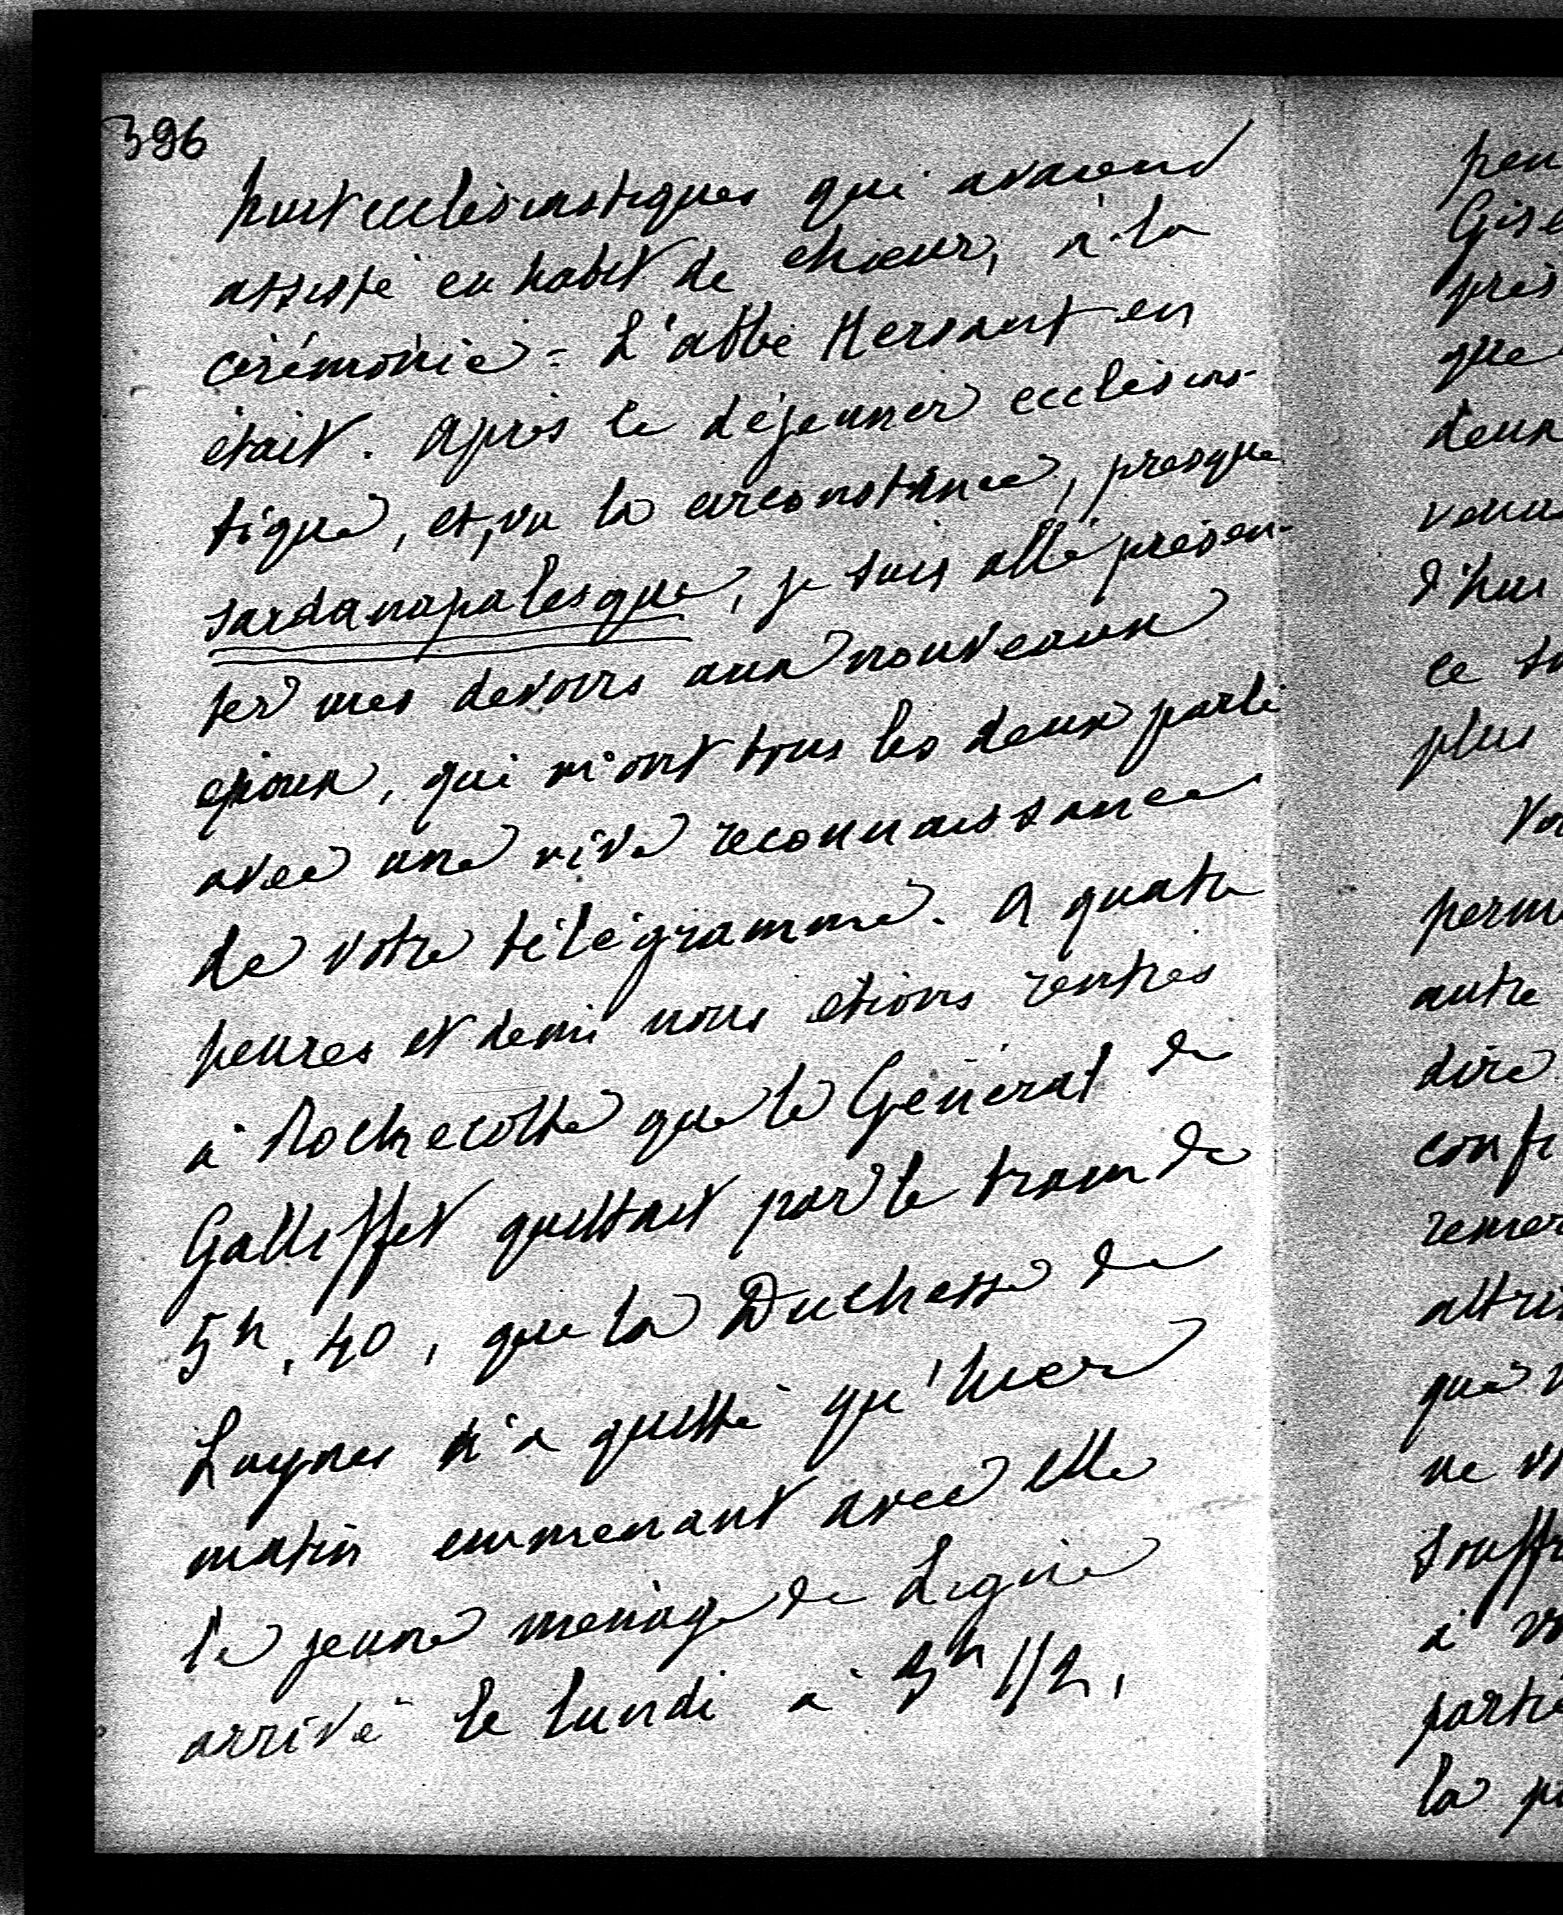 396
huit ecclésiastiques qui avaient
assisté en habit de chœur, à la
cérémonie = L'abbé Hersant en
était. Après le déjeuner ecclésias-
tique, et, vu la circonstance, presque
sardanapalesque, je suis allé présen-
ter mes devoirs aux nouveaux
époux, qui m'ont tous les deux parlé
avec une vive reconnaissance
de votre télégramme. A quatre
heures et demi nous étions rentrés
à Rochecotte que le Général de
Galliffet quittait par le train de
5h, 40, que la Duchesse de
Luynes n'a quitté qu'hier
matin emmenant avec elle
le jeune ménage de Ligne
arrivé le lundi à 3h 1/2,
peu
Gise
près
que
deux
venu
d'hui
ce
plus
perm
autre
dire
confi
remer
attri
que
ne
souffr
à
parti
la